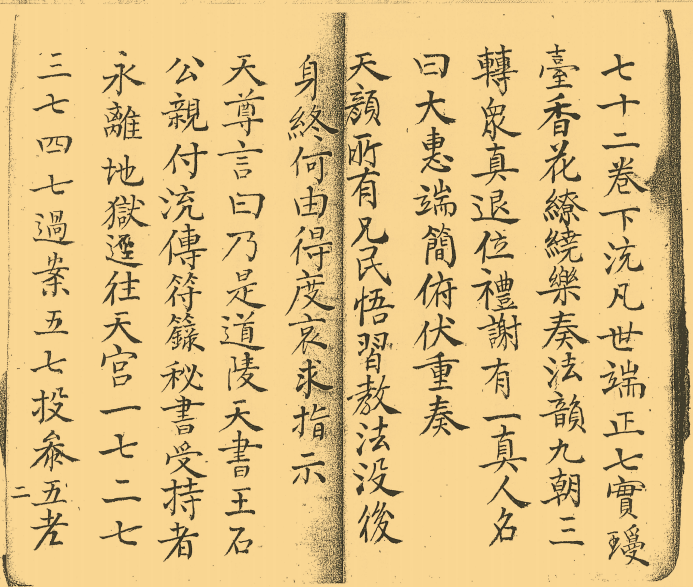 七十二卷下流凡世端正七寶
臺香花繚繞樂奏法韻九朝三
轉衆真退位禮謝有一真人名
曰大惠端簡俯伏重奏
天顏所有凡民悟習教法没後
身終何由得度哀求指示
天尊言曰乃是道陵天書王石
公親付流傳符籙秘書受持者
永離地獄逕往天宫一七二七
三七四七過案五七投叅五老
二